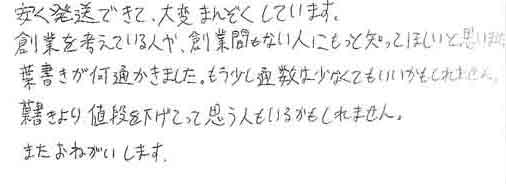 安く発送できて、大変まんぞくしています。
創業を考えている人や、創業間もない人にもっと知ってほしいと思いました
葉書きが何通かきました。もう少し通数は少なくてもいいかもしれません。
葉書きより値段を下げてって思う人もいるかもしれません。
またおねがいします。